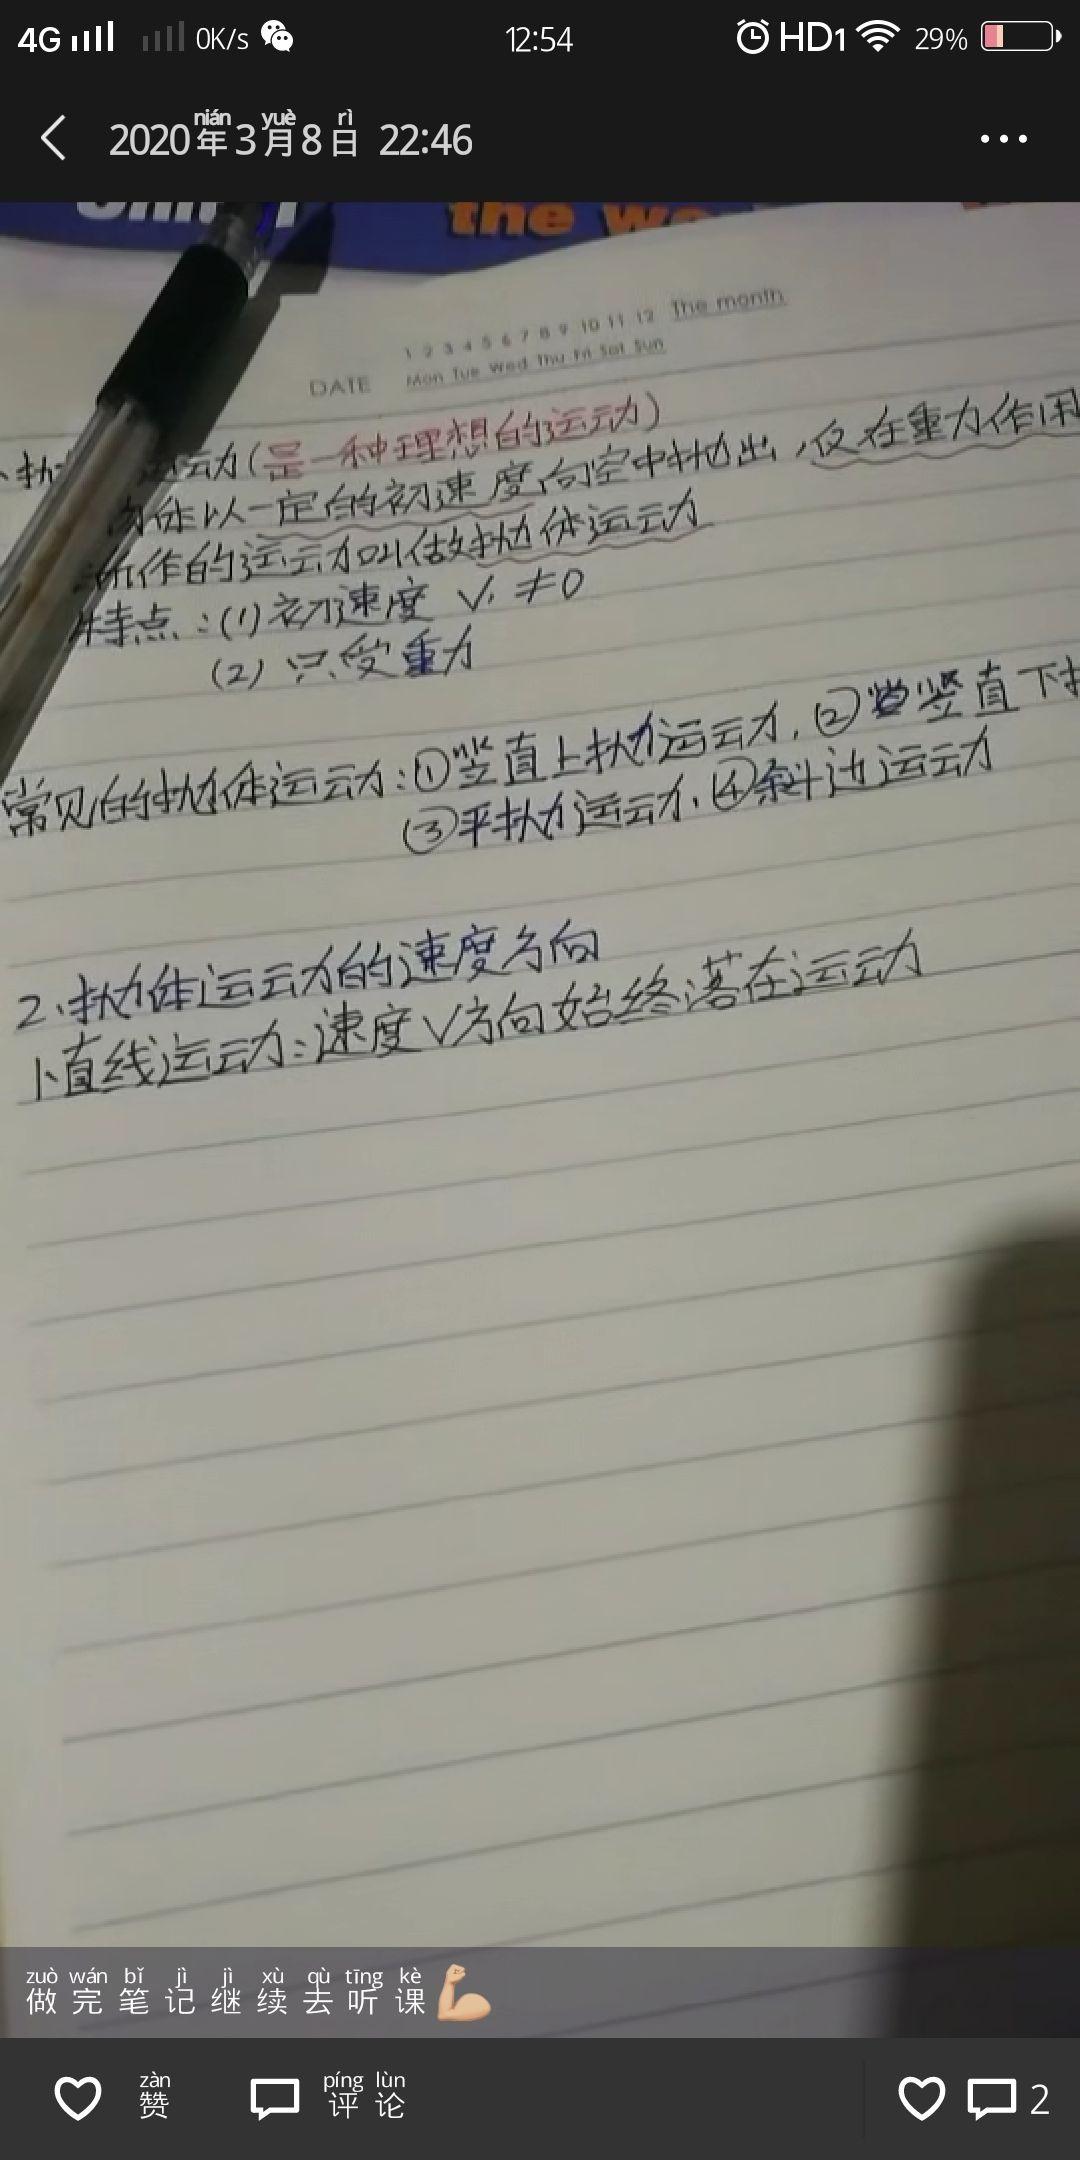 4G 0K/s 12:54 HD1 29%
nián yuè rì
2020年3月8日 22:46
the
1 2 3 4 5 6 7 8 9 10 11 12 The month
DATE Mon Tue Wed Thu Fri Sat Sun
运动(是一种理想的运动)
物体以一定的初速度向空中抛出,仅在重力作用
所作的运动叫做抛体运动
特点:(1)初速度 V. ≠0
(2)只受重力
常见的抛体运动:①竖直上抛运动.②竖直下
③平抛运动.④斜边运动
2.抛体运动的速度方向
1.直线运动:速度V方向始终落在运动
zuò wán bǐ jì jì xù qù tīng kè
做完笔记继续去听课💪
zàn píng lùn
赞 评论 2